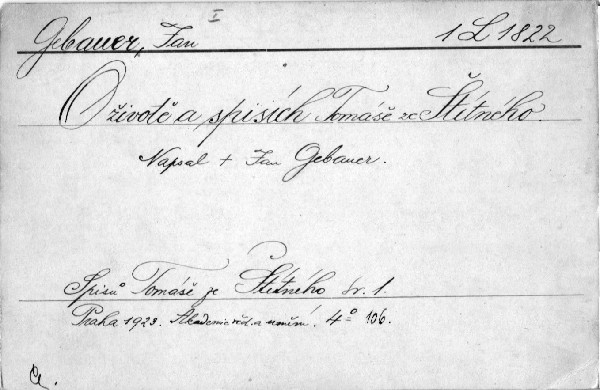 Gebauer, Jan I 1 L 1822
O životě a spisích Tomáše ze Štítného.
Napsal + Jan Gebauer.
Spisů Tomáše ze Štítného sv. 1.
Praha 1923. Akademie věd. a umění. 4° 106.